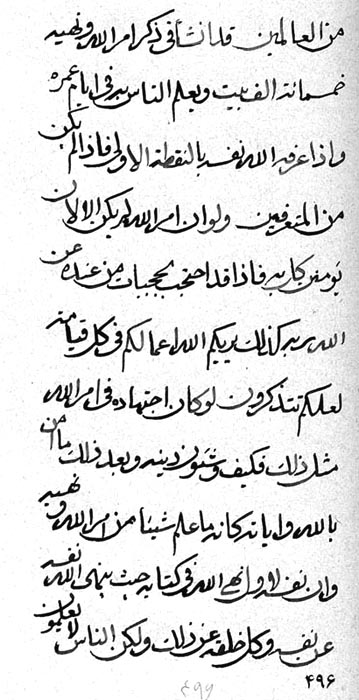 من العالمین قد انشأ فی ذکر امر الله و نهیه
خمسمائة الف بیت و یعلم الناس به فی ایام عمره
و اذا عرفه الله نفسه بالنقطة الاولی فاذا لم یکن
من المتعرفین و لو ان امر الله لم یکن الا لان
یؤمن کل به فاذا قد احتجب بحجبات من عنده عن
الله ربه کذلک یریکم الله اعمالکم فی کل قیامة
لعلکم تتذکرون لو کان اجتهاده فی امر الله
مثل ذلک فکیف و شئون دینه و بعد ذلک ما امن
بالله و ایاته کانه ما علم شیئا من امر الله و نهیه
وان نفسه لاول نهی الله فی کتابه حیث ینهی الله نفسه
عن نفسه و کل خلقه عن ذلک ولکن الناس لا یعلمون
۴۹۶
۴۹۹